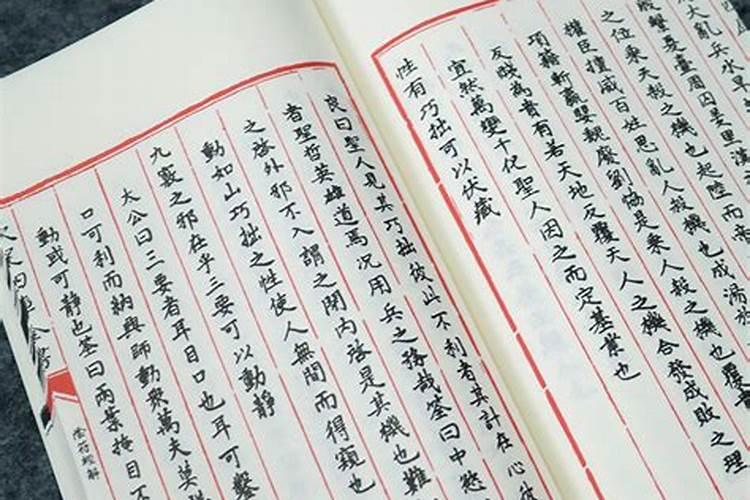 大亂兵水旱
之位乘天殺之機也起陸而
權臣擅威百姓思亂人殺機也成湯放
項籍新嬴嬰魏廢劉協是乘人殺之機也覆貴
反賤為貴有若天地反覆天人之機合發成敗之理
宜然萬變千化聖人因之而定基業也
性有巧拙可以伏藏
良曰聖人見其巧拙彼此不利者其計在心彼
者聖哲英雄道焉况用兵之務哉筌曰中慾
之啓外邪不入謂之閉内啓是其機也難
動如山巧拙之性使人無間而得窺也
九竅之邪在乎三要可以動靜
太公曰三要者耳目口也耳可鑿
口可利而納興師動衆萬夫莫
動或可靜也筌曰兩葉掩目不
陰符經解